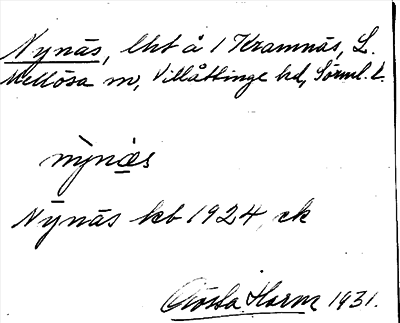 Nynäs, lht å 1 Kramnäs, L.
Mellösa sn, Villåttinge hd, Sörml. l.
nỳnä̀s
Nynäs kb 1924, ek
Gösta Harm 1931.